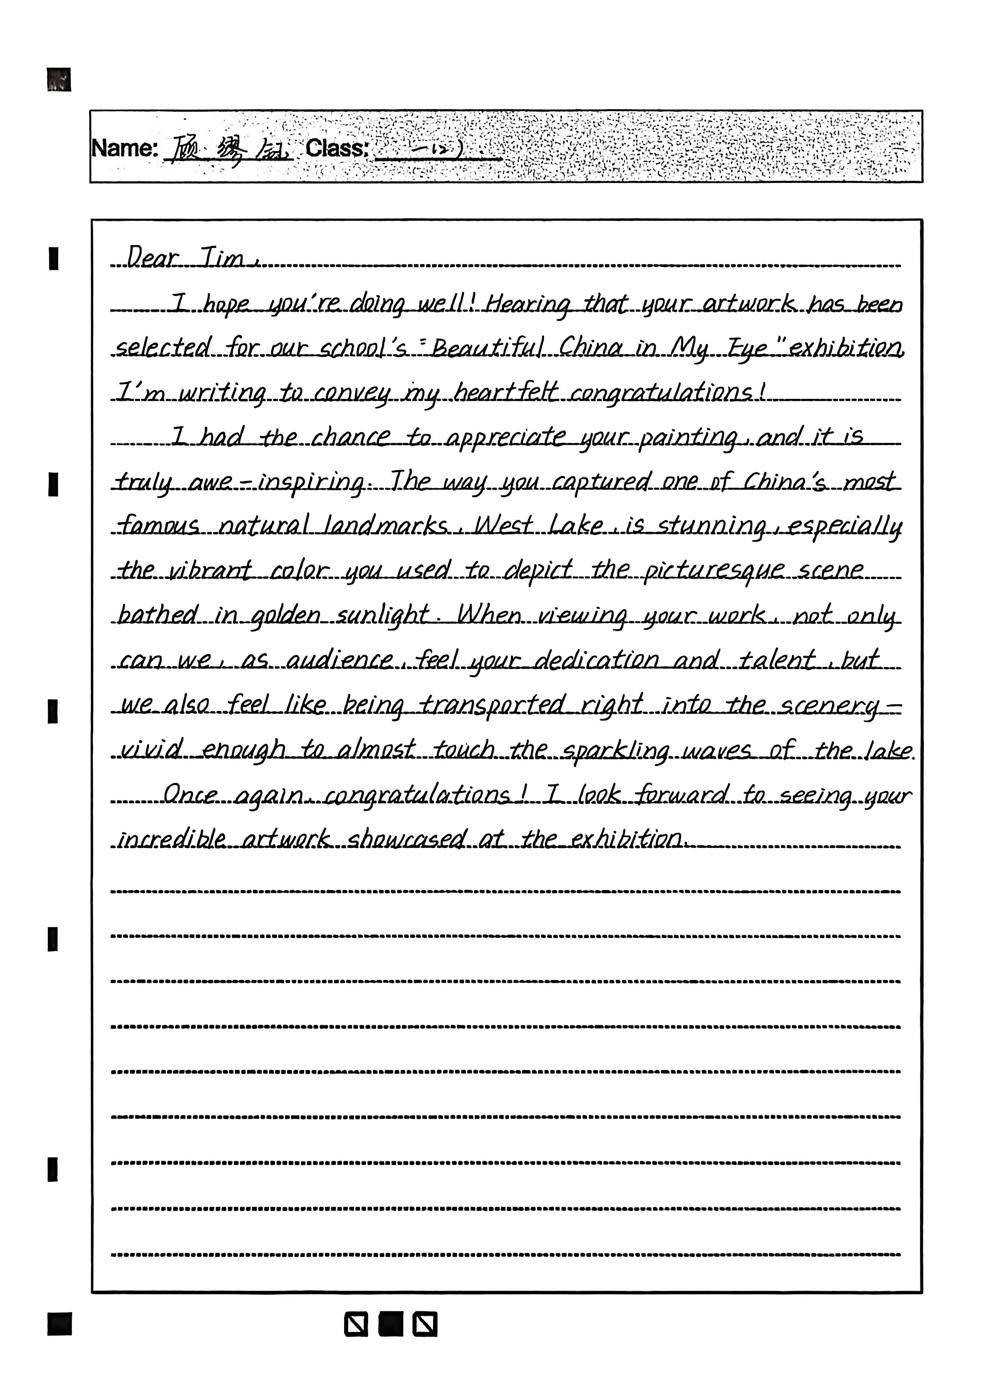 Name: 顾缪 Class: 一(2)
Dear Tim,
I hope you're doing well! Hearing that your artwork has been
selected for our school's "Beautiful China in My Eye" exhibition,
I'm writing to convey my heartfelt congratulations!
I had the chance to appreciate your painting, and it is
truly awe-inspiring. The way you captured one of China's most
famous natural landmarks, West Lake, is stunning, especially
the vibrant color you used to depict the picturesque scene
bathed in golden sunlight. When viewing your work, not only
can we, as audience, feel your dedication and talent, but
we also feel like being transported right into the scenery—
vivid enough to almost touch the sparkling waves of the lake.
Once again, congratulations! I look forward to seeing your
incredible artwork showcased at the exhibition.